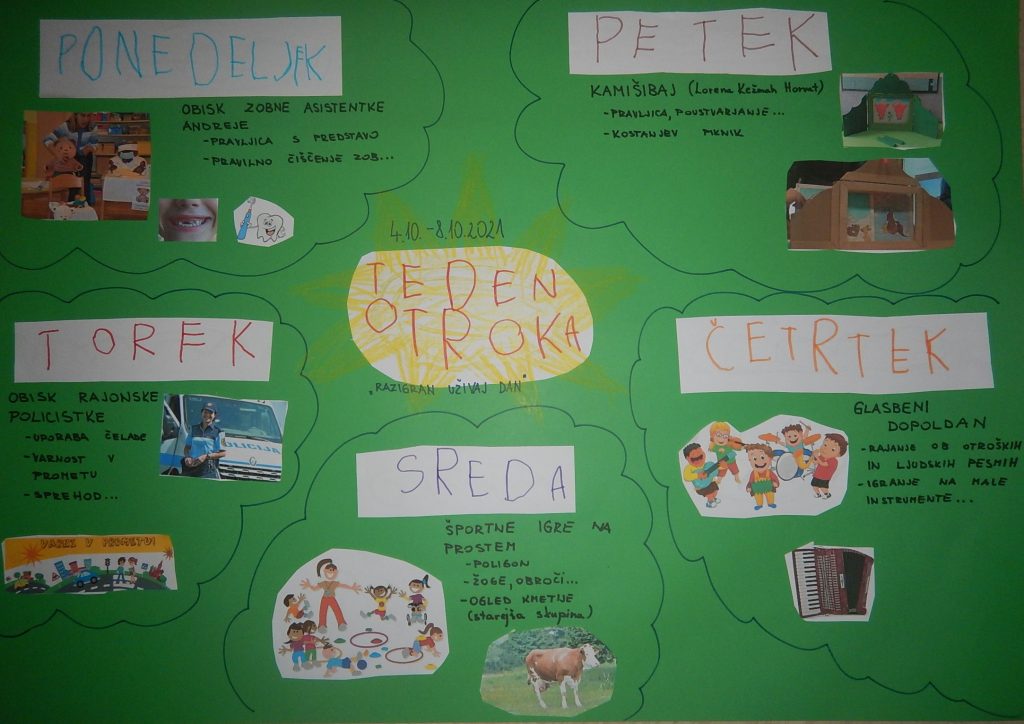 PONEDELJEK
OBISK ZOBNE ASISTENTKE
ANDREJE
- PRAVLJICA S PREDSTAVO
- PRAVILNO ČIŠČENJE ZOB...
PETEK
KAMIŠIBAJ (Lorena Kežmah Horvat)
- PRAVLJICA, POUSTVARJANJE...
- KOSTANJEV PIKNIK
4.10.-8.10.2021
TEDEN
OTROKA
„RAZIGRAN UŽIVAJ DAN“
TOREK
OBISK RAJONSKE
POLICISTKE
- UPORABA ČELADE
- VARNOST V
PROMETU
- SPREHOD...
VARNI V PROMETU!
SREDA
ŠPORTNE IGRE NA
PROSTEM
- POLIGON
- ŽOGE, OBROČI...
- OGLED KMETIJE
(starejša skupina)
ČETRTEK
GLASBENI
DOPOLDAN
- RAJANJE OB OTROŠKIH
IN LJUDSKIH PESMIH
- IGRANJE NA MALE
INSTRUMENTE...